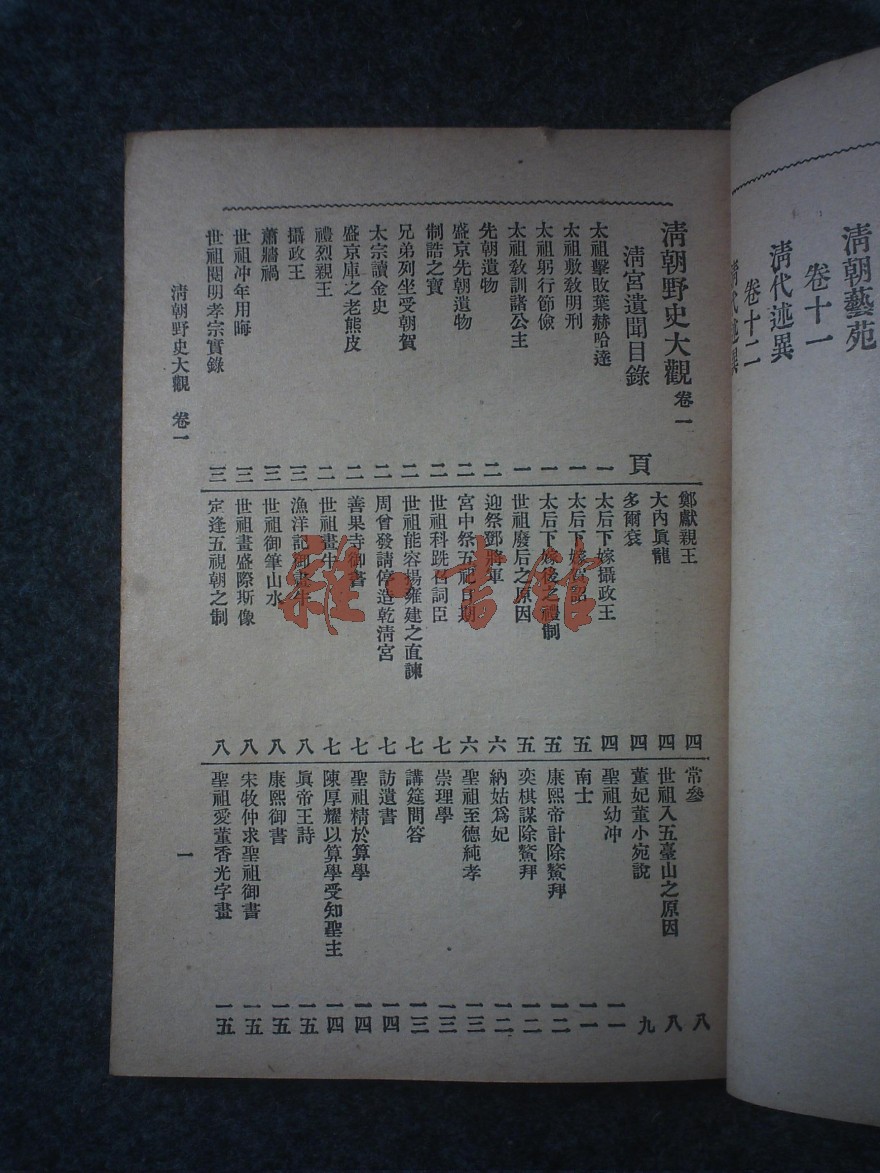 清朝藝苑
卷十一
清代述異
卷十二
清代述異
清朝野史大觀 卷一
清宮遺聞目錄 頁
太祖擊敗葉赫哈達 一
太祖敷敎明刑 一
太祖躬行節儉 一
太祖敎訓諸公主 一
先朝遺物 二
盛京先朝遺物 二
制誥之寶 二
兄弟列坐受朝賀 二
太宗讀金史 二
盛京庫之老熊皮 二
禮烈親王 二
攝政王 三
蕭牆禍 三
世祖冲年用晦 三
世祖閱明孝宗實錄 三
鄭獻親王 四
大內眞龍 四
多爾袞 四
太后下嫁攝政王 四
太后下嫁賀詔 五
太后下嫁後之禮制 五
世祖廢后之原因 五
迎祭鄧將軍 六
宮中祭五祀日期 六
世祖科跣召詞臣 七
世祖能容楊雍建之直諫 七
周曾發請停造乾清宮 七
善果寺御書 七
世祖畫牛 七
漁洋記御畫牛 八
世祖御筆山水 八
世祖畫盛際斯像 八
定逢五視朝之制 八
常參 八
世祖入五臺山之原因 八
董妃董小宛說 九
聖祖幼冲 一一
南士 一一
康熙帝計除鰲拜 一二
奕棋謀除鰲拜 一二
納姑爲妃 一二
聖祖至德純孝 一三
崇理學 一三
講筵問答 一三
訪遺書 一四
聖祖精於算學 一四
陳厚耀以算學受知聖主 一四
眞帝王詩 一五
康熙御書 一五
宋牧仲求聖祖御書 一五
聖祖愛董香光字畫 一五
清朝野史大觀 卷一
一
雜·書館